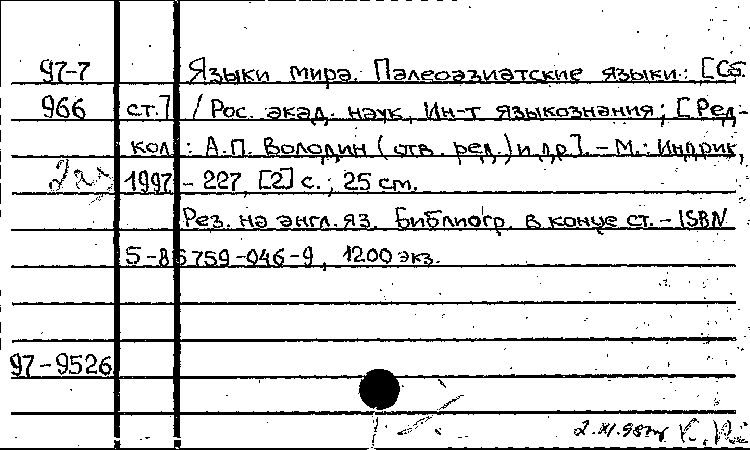 97-7 Языки мира. Палеоазиатские языки: [Сб.
966 ст.] / Рос. акад. наук, Ин-т языкознания; [Ред-
кол.: А.П. Володин (отв. ред.) и др.]. - М.: Индрик,
1997 - 227, [2] с.; 25 см.
Рез. на англ. яз. Библиогр. в конце ст. - ISBN
5-85759-046-9, 1200 экз.
97-9526
2.XI.98